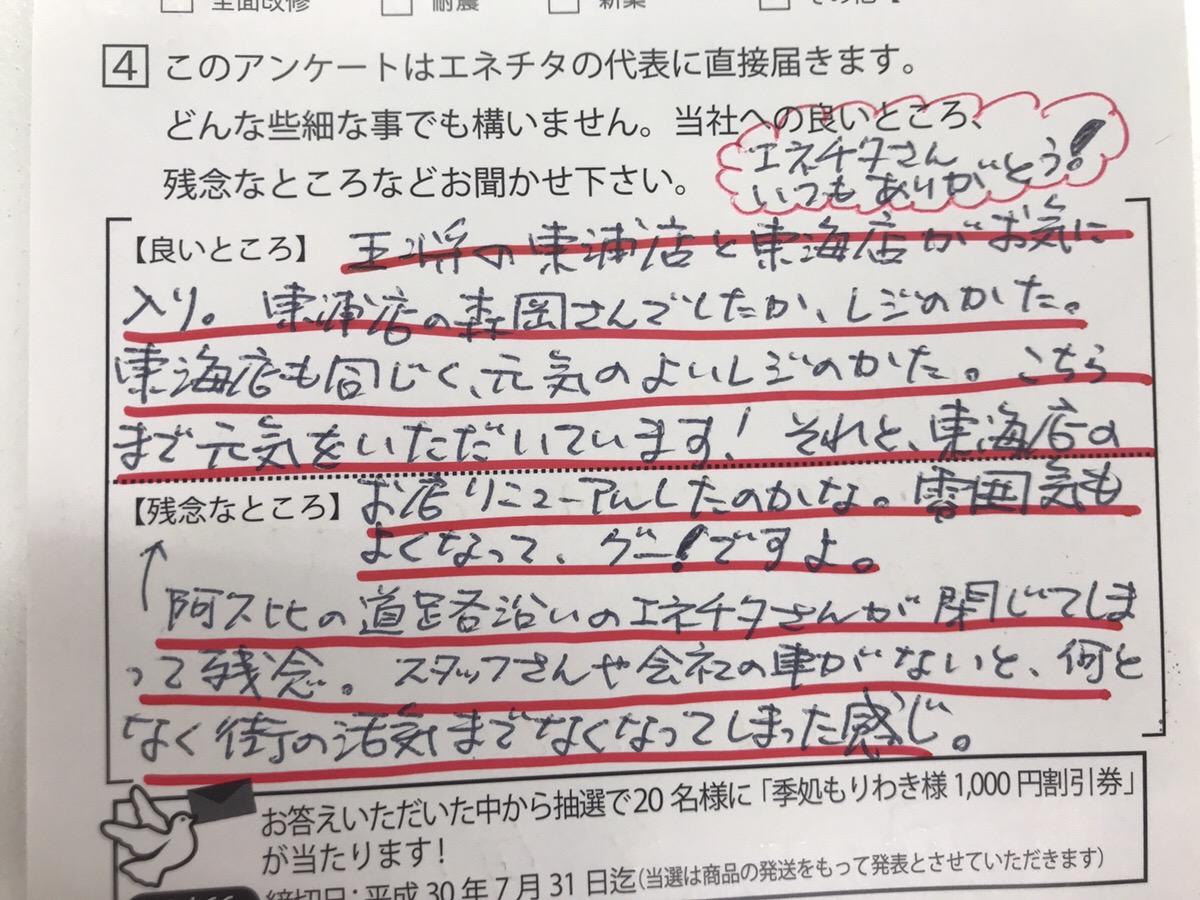 全面改修 耐震 新築 その他【
4 このアンケートはエネチタの代表に直接届きます。
どんな些細な事でも構いません。当社への良いところ、
残念なところなどお聞かせ下さい。
エネチタさん
いつもありがとう!
【良いところ】 王将の東浦店と東海店がお気に
入り。東浦店の森岡さんでしたか、レジのかた。
東海店も同じく、元気のよいレジのかた。こちら
まで元気をいただいています! それと、東海店の
【残念なところ】 お店リニューアルしたのかな。雰囲気も
よくなって、グー!ですよ。
阿久比の道路沿いのエネチタさんが閉じてしま
って残念。スタッフさんや会社の車がないと、何と
なく街の活気までなくなってしまった感じ。
お答えいただいた中から抽選で20名様に「季処もりわき様1,000円割引券」
が当たります!
締切日:平成30年7月31日迄(当選は商品の発送をもって発表とさせていただきます)